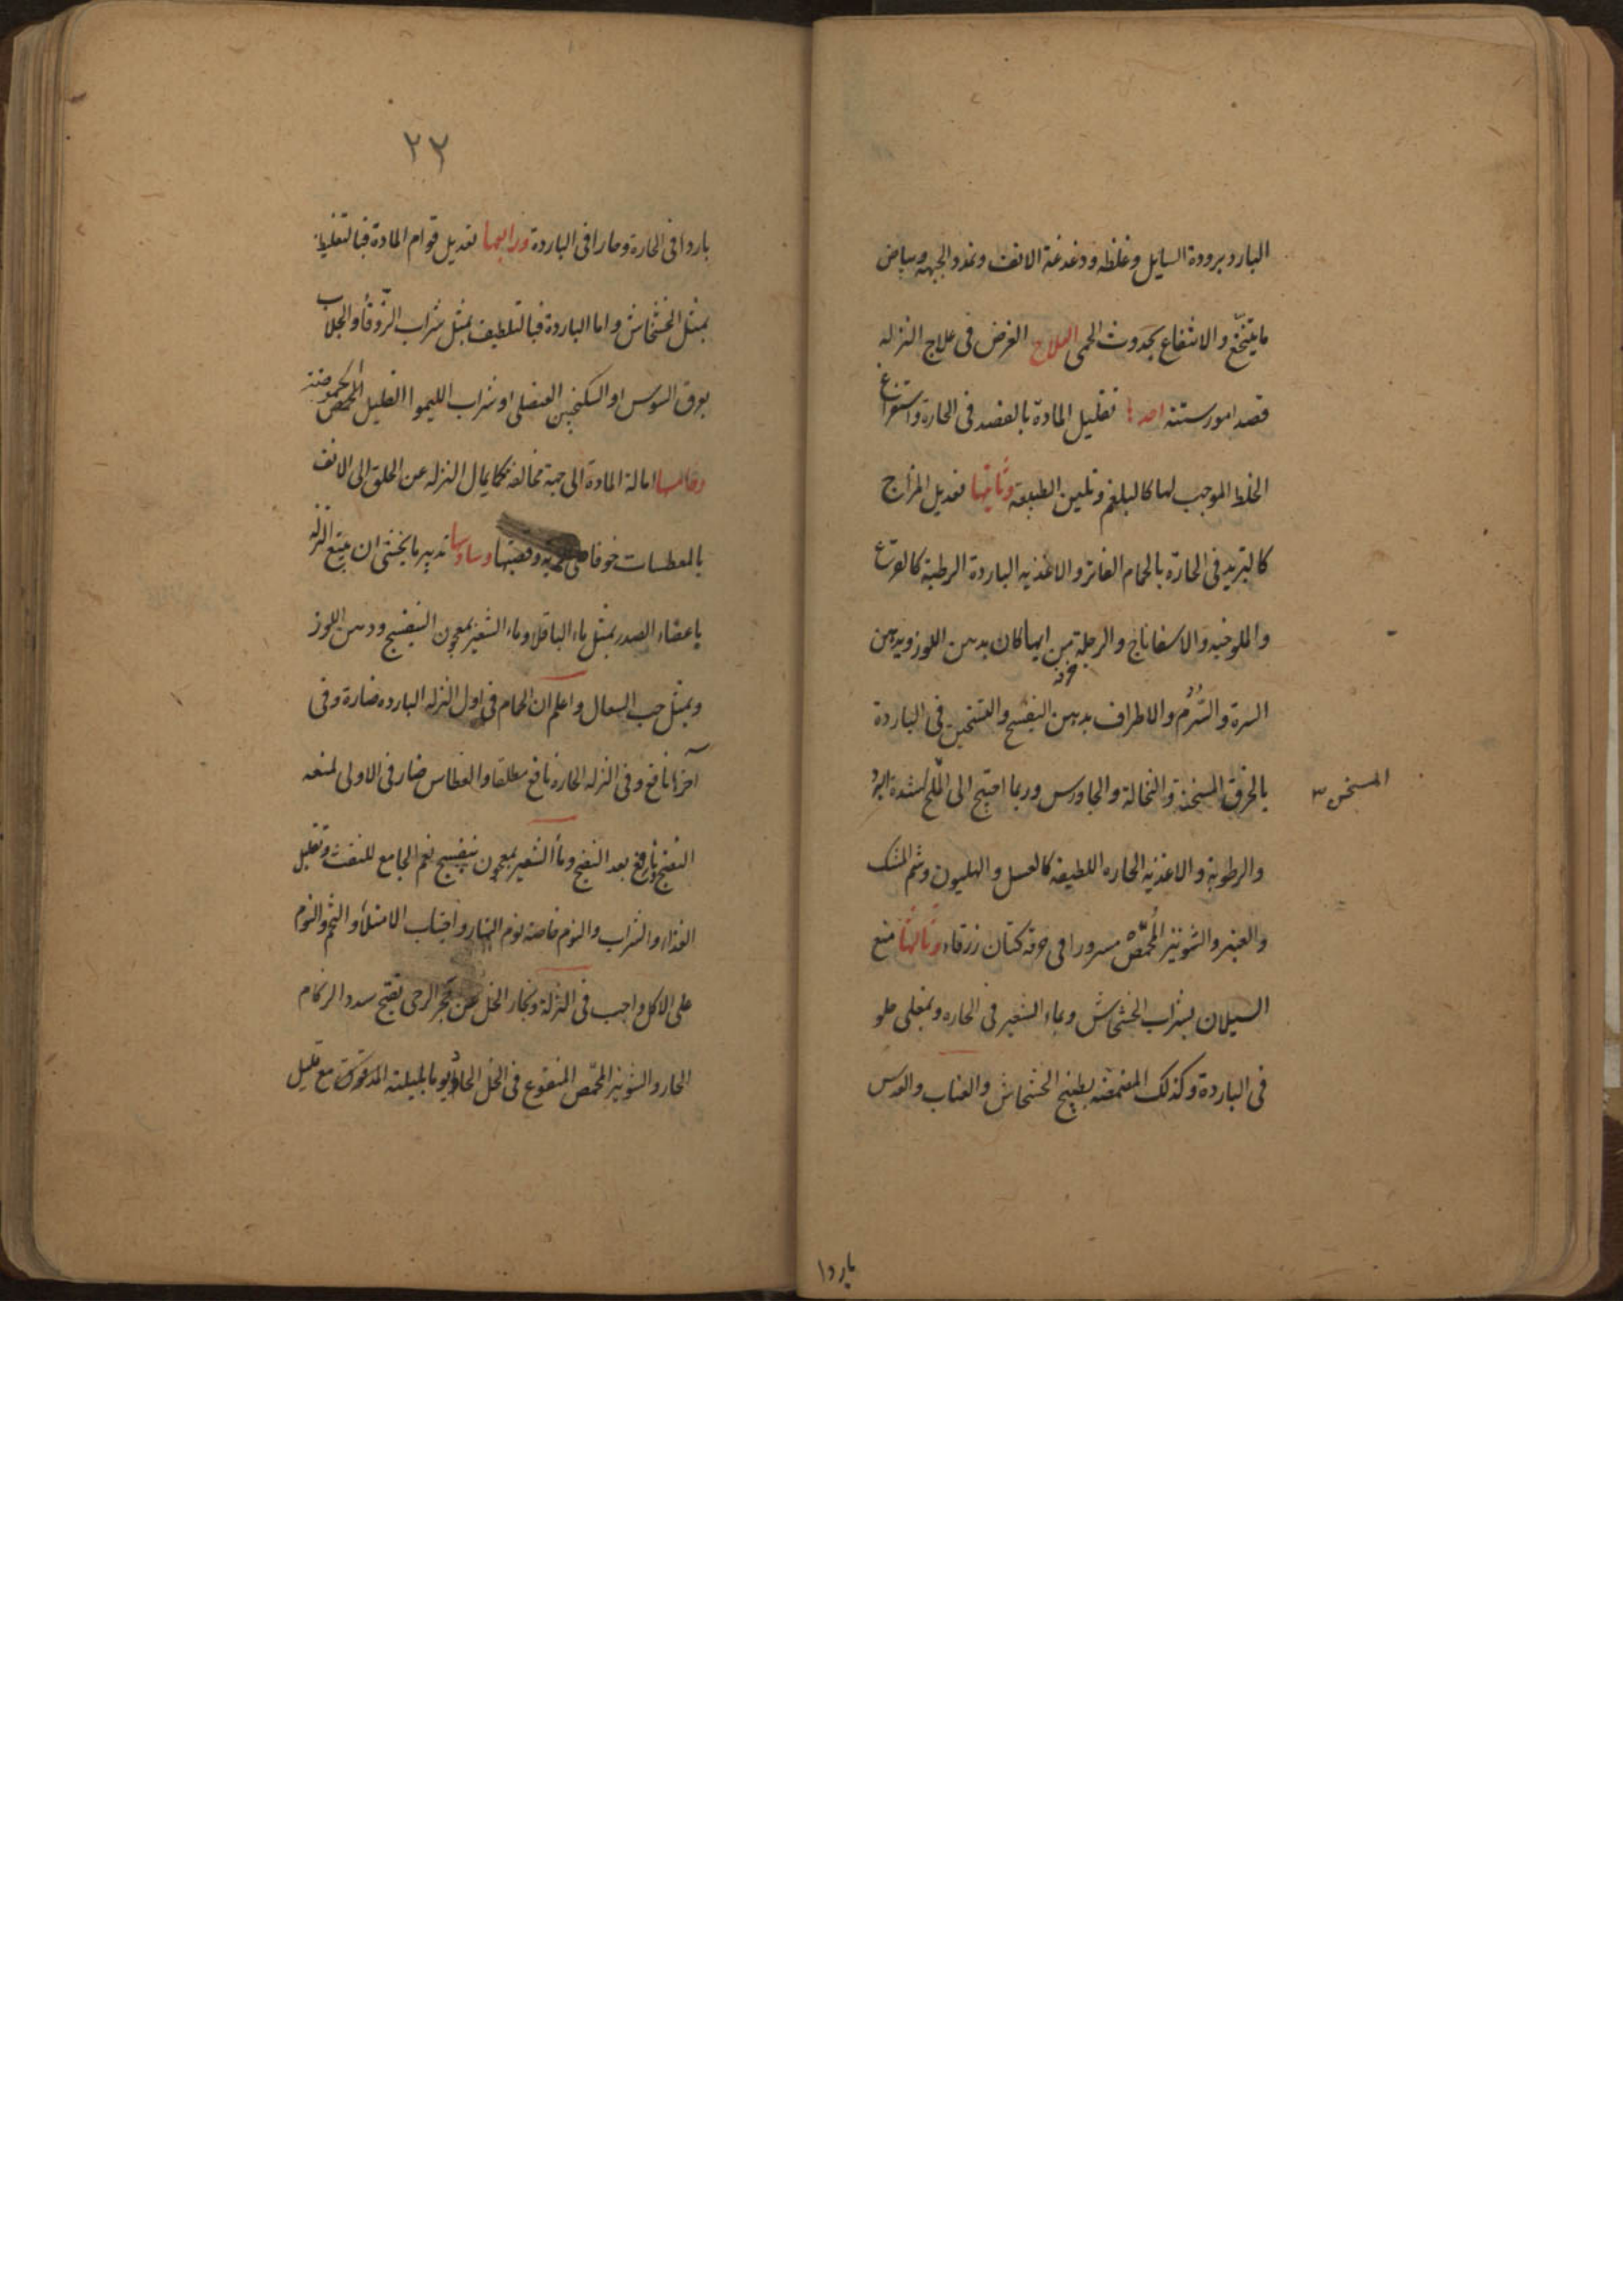 البارد برودة السايل وغلظه ودغدغة الانف وتمدد الجبهه وبياض
ما يتنخع والانتفاع بحدوث الحمى العلاج الغرض فى علاج النزله
قصد امور ستة احدها تقليل المادة بالفصد فى الحارة واستفراغ
الخلط الموجب لها كالبلغم وتليين الطبيعة وثانيها تعديل المزاج
كالتبريد فى الحارة بالحمام الفاتر والاغذيه الباردة الرطبة كالقرع
والملوخيه والاسفاناخ والرجلة من ايها كان بدهن اللوز ويدهن
السرة والسرم والاطراف بدهن البنفسج والتسخين فى الباردة
بالخرق المسخنة والنخالة والجاورس وربما احتيج الى الملح لشدة البرد
المسخن
والرطوبة والاغذية الحاره اللطيفه كالعسل والهليون وشم المسك
والعنبر والشونيز المحمص مسرورا فى خرقه كتان زرقاء وثالثها منع
السيلان بشراب الخشخاش وبماء الشعير فى الحاره وبمغلى حلو
فى الباردة وكذلك المضمضه بطبيخ الخشخاش والعناب والعدس
باردا
٢٢
باردا فى الحارة وحارا فى الباردة ورابعها تعديل قوام المادة فبالتغليظ
بمثل الخشخاش واما الباردة فبالتلطيف بمثل شراب الزوفا والجلاب
بعرق السوس او السكنجبين العنصلى او شراب الليموا القليل الحموضة
وخامسها امالة المادة الى جهة مخالفة كما يمال النزله عن الحلق الى الانف
بالمعطسات خوفا وقصبتها وسادسها تدبير ما يخشى ان يتبع النزله
باعضاء الصدر بمثل ماء الباقلا وماء الشعير بمعجون البنفسج ودهن اللوز
وبمثل حب السعال واعلم ان الحمام فى اول النزله البارده ضارة وفى
آخرها نافع وفى النزله الحاره نافع مطلقا والعطاس ضار فى الاولى لمنعه
النضج ونافع بعد النضج وماء الشعير بمعجون بنفسج نعم الجامع للنفث وتقليل
الغذاء والشراب والنوم خاصة نوم النهار واجتناب الامتلاء والتخم والنوم
على الاكل واجب فى النزلة وبخار الخل عن حجر الرحى يفتح سدد الزكام
الحار والشونيز المحمص المنقوع فى الخل يوما بليلته المدقوق مع قليل